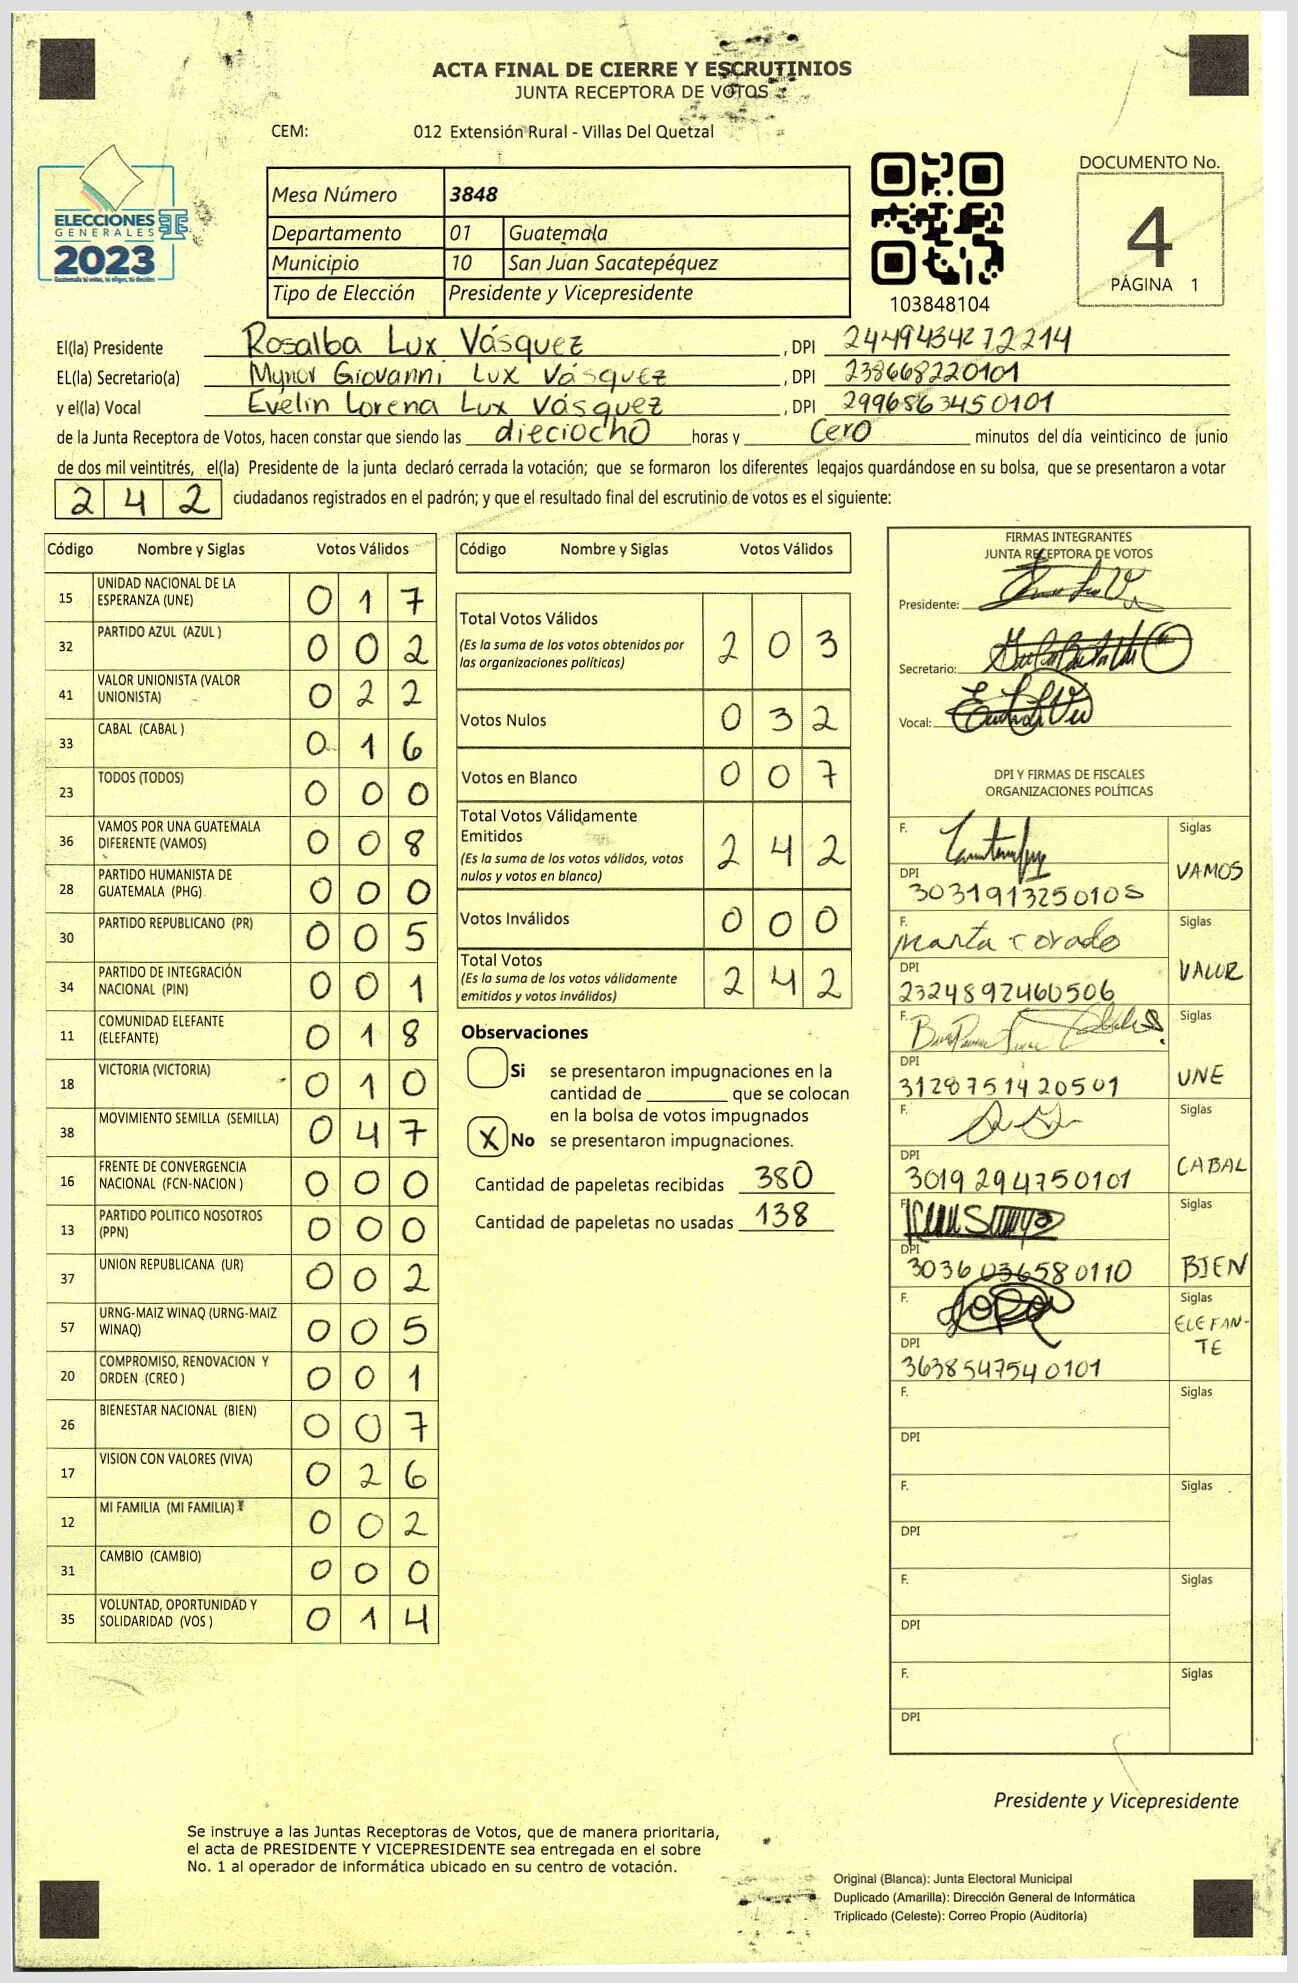 ACTA FINAL DE CIERRE Y ESCRUTINIOS
JUNTA RECEPTORA DE VOTOS
CEM: 012 Extensión Rural - Villas Del Quetzal
ELECCIONES
GENERALES
2023
Mesa Número 3848
Departamento 01 Guatemala
Municipio 10 San Juan Sacatepéquez
Tipo de Elección Presidente y Vicepresidente
103848104
DOCUMENTO No.
4
PÁGINA 1
El(la) Presidente Rosalba Lux Vásquez, DPI 2449434272214
EL(la) Secretario(a) Mynor Giovanni Lux Vásquez, DPI 238668220101
y el(la) Vocal Evelin Lorena Lux Vásquez, DPI 2996863450101
de la Junta Receptora de Votos, hacen constar que siendo las dieciocho horas y cero minutos del día veinticinco de junio
de dos mil veintitrés, el(la) Presidente de la junta declaró cerrada la votación; que se formaron los diferentes legajos guardándose en su bolsa, que se presentaron a votar
242 ciudadanos registrados en el padrón; y que el resultado final del escrutinio de votos es el siguiente:
Código Nombre y Siglas Votos Válidos
15 UNIDAD NACIONAL DE LA ESPERANZA (UNE) 0 1 7
32 PARTIDO AZUL (AZUL ) 0 0 2
41 VALOR UNIONISTA (VALOR UNIONISTA) 0 2 2
33 CABAL (CABAL ) 0 1 6
23 TODOS (TODOS) 0 0 0
36 VAMOS POR UNA GUATEMALA DIFERENTE (VAMOS) 0 0 8
28 PARTIDO HUMANISTA DE GUATEMALA (PHG) 0 0 0
30 PARTIDO REPUBLICANO (PR) 0 0 5
34 PARTIDO DE INTEGRACIÓN NACIONAL (PIN) 0 0 1
11 COMUNIDAD ELEFANTE (ELEFANTE) 0 1 8
18 VICTORIA (VICTORIA) 0 1 0
38 MOVIMIENTO SEMILLA (SEMILLA) 0 4 7
16 FRENTE DE CONVERGENCIA NACIONAL (FCN-NACION ) 0 0 0
13 PARTIDO POLITICO NOSOTROS (PPN) 0 0 0
37 UNION REPUBLICANA (UR) 0 0 2
57 URNG-MAIZ WINAQ (URNG-MAIZ WINAQ) 0 0 5
20 COMPROMISO, RENOVACION Y ORDEN (CREO ) 0 0 1
26 BIENESTAR NACIONAL (BIEN) 0 0 7
17 VISION CON VALORES (VIVA) 0 2 6
12 MI FAMILIA (MI FAMILIA) 0 0 2
31 CAMBIO (CAMBIO) 0 0 0
35 VOLUNTAD, OPORTUNIDAD Y SOLIDARIDAD (VOS ) 0 1 4
Código Nombre y Siglas Votos Válidos
Total Votos Válidos 2 0 3
(Es la suma de los votos obtenidos por
las organizaciones políticas)
Votos Nulos 0 3 2
Votos en Blanco 0 0 7
Total Votos Válidamente
Emitidos 2 4 2
(Es la suma de los votos válidos, votos
nulos y votos en blanco)
Votos Inválidos 0 0 0
Total Votos 2 4 2
(Es la suma de los votos válidamente
emitidos y votos inválidos)
Observaciones
Si se presentaron impugnaciones en la
cantidad de ________ que se colocan
en la bolsa de votos impugnados
X No se presentaron impugnaciones.
Cantidad de papeletas recibidas 380
Cantidad de papeletas no usadas 138
FIRMAS INTEGRANTES
JUNTA RECEPTORA DE VOTOS
Presidente:
Secretario:
Vocal:
DPI Y FIRMAS DE FISCALES
ORGANIZACIONES POLÍTICAS
F. Siglas
DPI VAMOS
3031913250108
F. Marta Corado Siglas
DPI VALOR
2324892460506
F. Siglas
DPI UNE
3128751420501
F. Siglas
DPI CABAL
3019294750101
F. Siglas
DPI BIEN
3036036580110
F. Siglas
ELEFAN-
TE
DPI
3638547540101
F. Siglas
DPI
F. Siglas
DPI
F. Siglas
DPI
F. Siglas
DPI
Presidente y Vicepresidente
Se instruye a las Juntas Receptoras de Votos, que de manera prioritaria,
el acta de PRESIDENTE Y VICEPRESIDENTE sea entregada en el sobre
No. 1 al operador de informática ubicado en su centro de votación.
Original (Blanca): Junta Electoral Municipal
Duplicado (Amarilla): Dirección General de Informática
Triplicado (Celeste): Correo Propio (Auditoría)